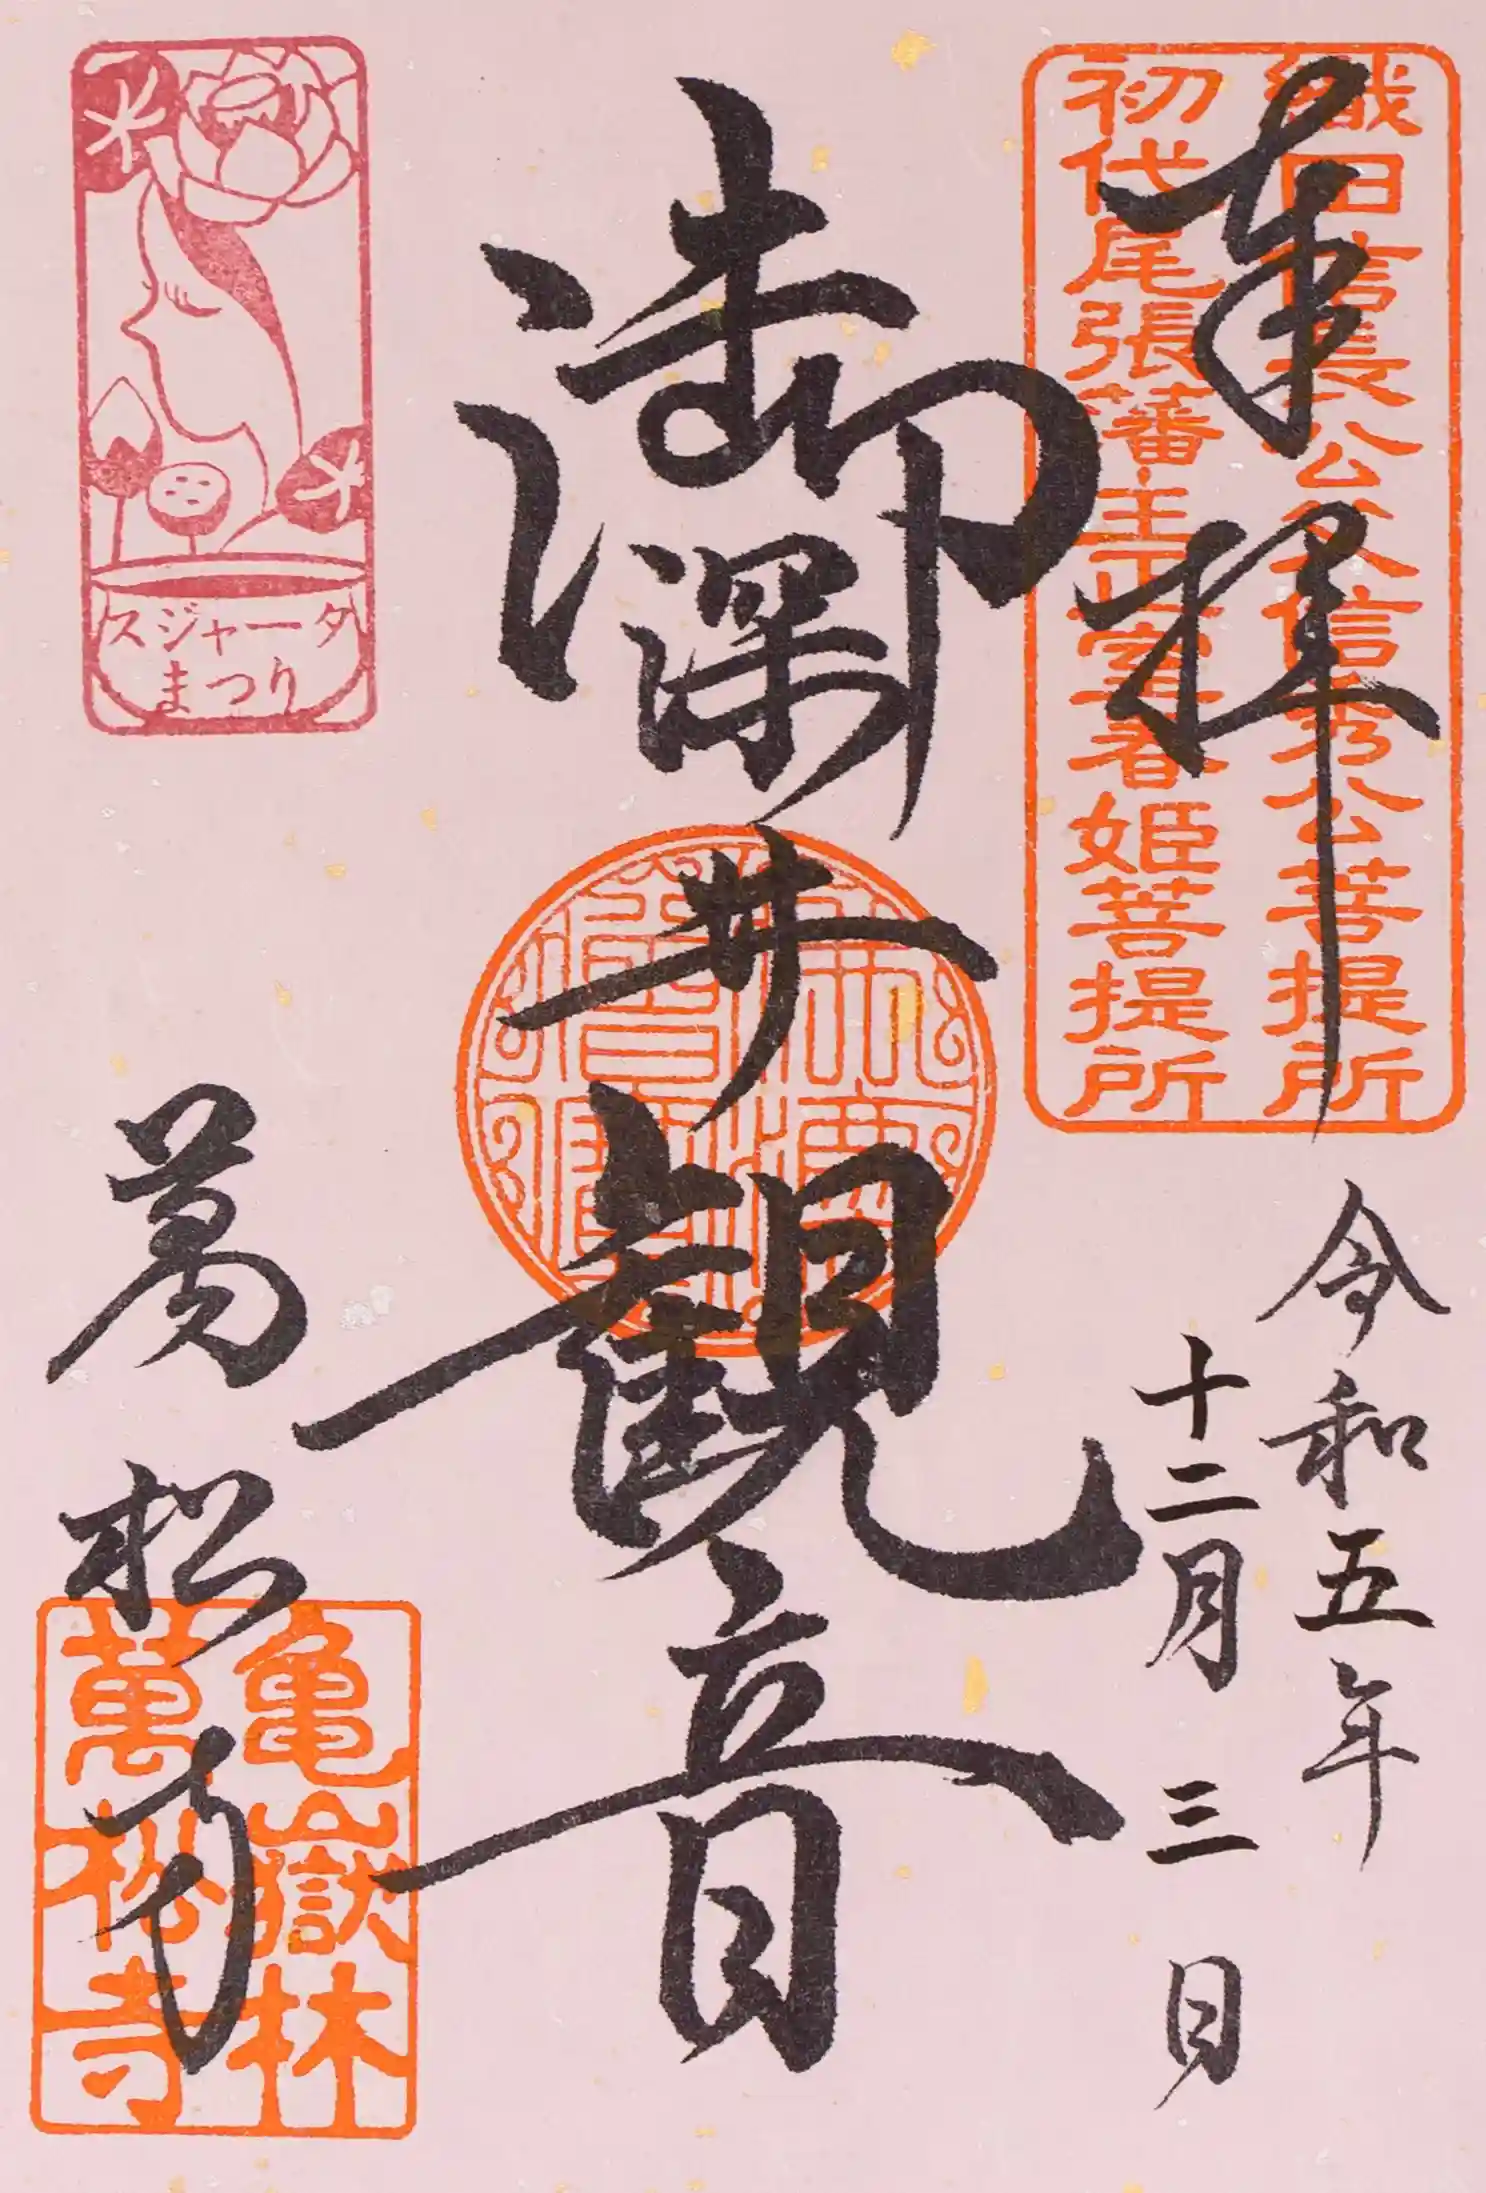 奉拝
織田信長公父信秀公菩提所
初代尾張藩主正室春姫菩提所
令和五年
十二月三日
御深井観音
スジャータ
まつり
萬松寺
亀嶽林
萬松寺